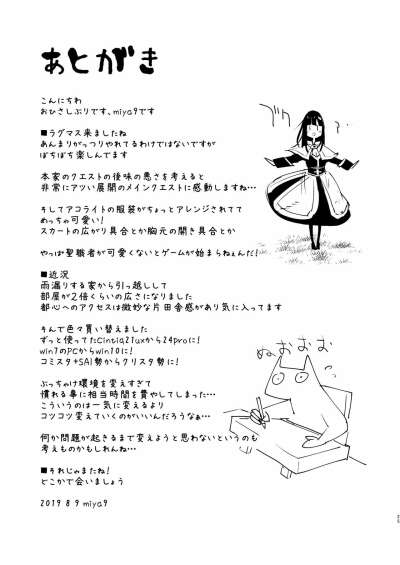 あとがき
こんにちわ
おひさしぶりです、miya9です
■ラグマス来ましたね
あんまりがっつりやれてるわけではないですが
ぼちぼち楽しんでます
本家のクエストの後味の悪さを考えると
非常にアツい展開のメインクエストに感動しますね…
そしてアコライトの服装がちょっとアレンジされてて
めっちゃ可愛い!
スカートの広がり具合とか胸元の開き具合とか
やっぱ聖職者が可愛くないとゲームが始まらねぇんだ!
■近況
雨漏りする家から引っ越しして
部屋が2倍くらいの広さになりました
都心へのアクセスは微妙な片田舎感があり気に入ってます
そんで色々買い替えました
ずっと使ってたCintiq21uxから24proに!
win7のPCからwin10に!
コミスタ+SAI勢からクリスタ勢に!
ぶっちゃけ環境を変えすぎて
慣れる事に相当時間を費やしてしまった…
こういうのは一気に変えるより
コツコツ変えていくのがいいんだろうなぁ…
何か問題が起きるまで変えようと思わないというのも
考えものかもしれんね…
■それじゃまたね!
どこかで会いましょう
2019 8 9 miya9
ぬおおおむ